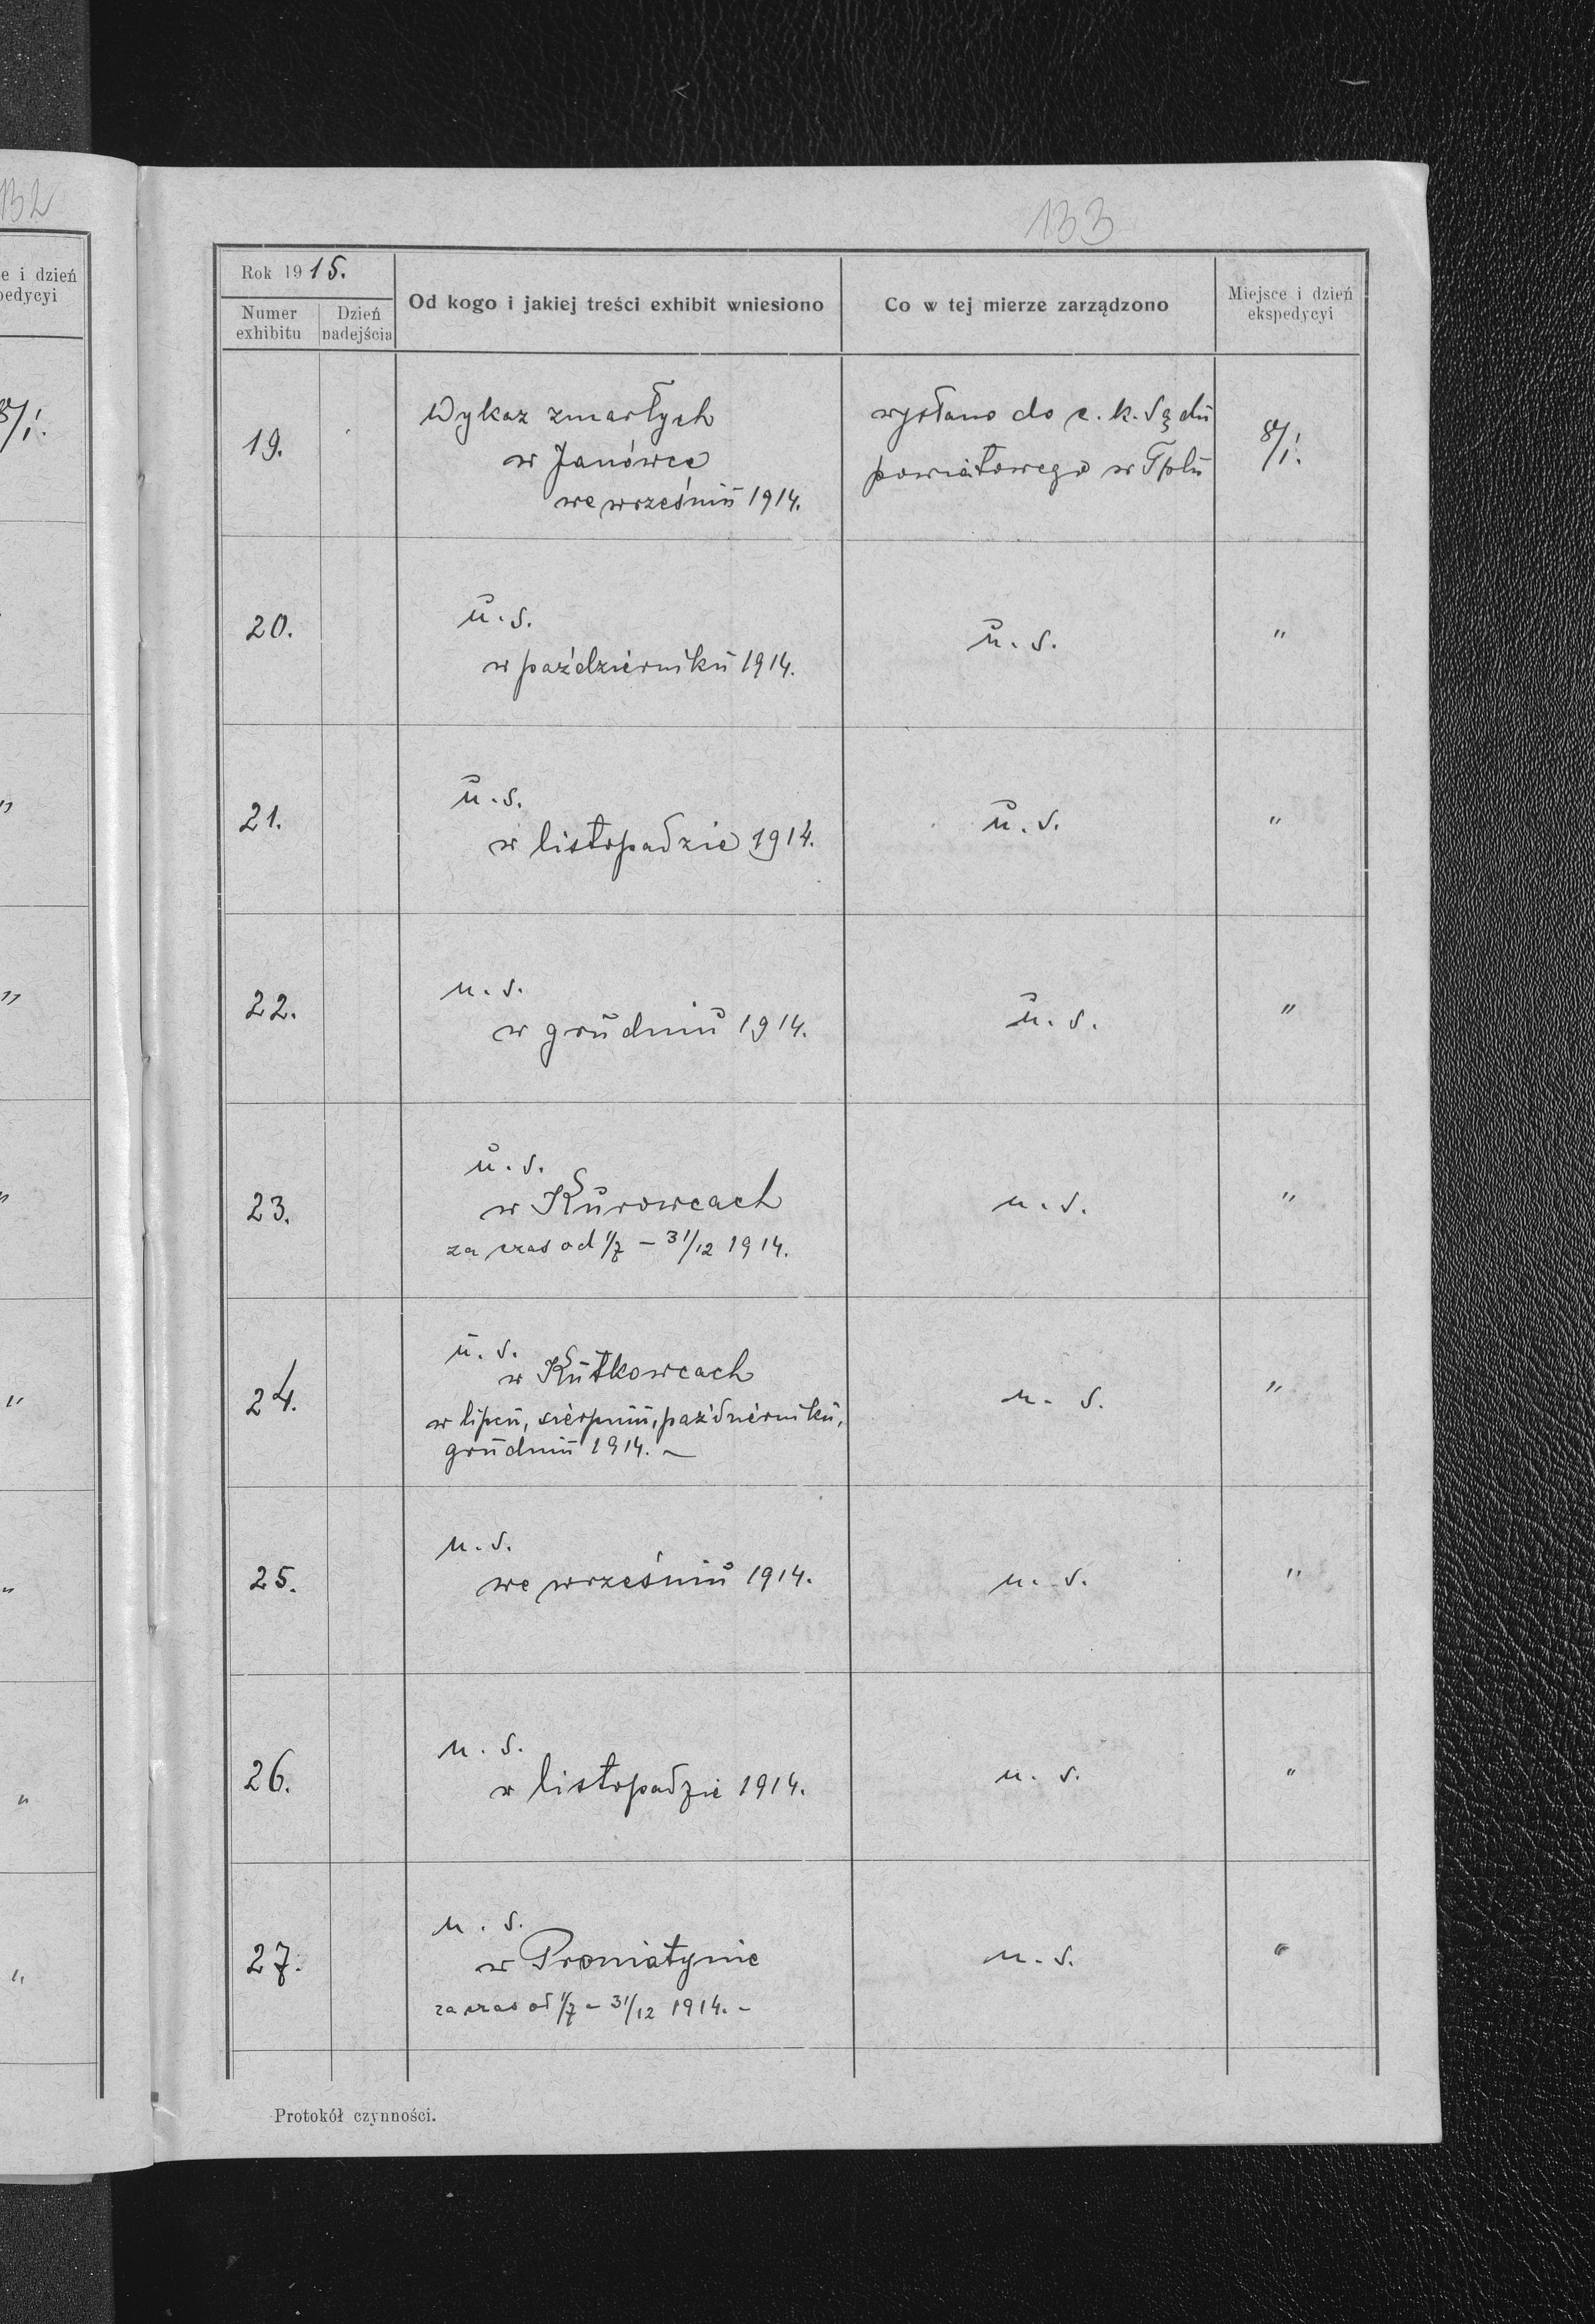 132
e i dzień
pedycyi
8/I.
"
"
"
"
"
"
"
133
Rok 1915.
Numer exhibitu
Dzień nadejścia
Od kogo i jakiej treści exhibit wniesiono
Co w tej mierze zarządzono
Miejsce i dzień ekspedycyi
19.
Wykaz zmarłych
w Janówce
we wrześniu 1914.
wysłano do c. k. Sądu
powiatowego w Tplu
8/I.
20.
u. s.
w październiku 1914.
u. s.
"
21.
u. s.
w listopadzie 1914.
u. s.
"
22.
u. s.
w grudniu 1914.
u. s.
"
23.
u. s.
w Kurowcach
za czas od 1/7 – 31/12 1914.
u. s.
"
24.
u. s.
w Kutkowcach
w lipcu, sierpniu, październiku,
grudniu 1914. –
u. s.
"
25.
u. s.
we wrześniu 1914.
u. s.
"
26.
u. s.
w listopadzie 1914.
u. s.
"
27.
u. s.
w Proniatynie
za czas od 1/7 – 31/12 1914. –
u. s.
"
Protokół czynności.